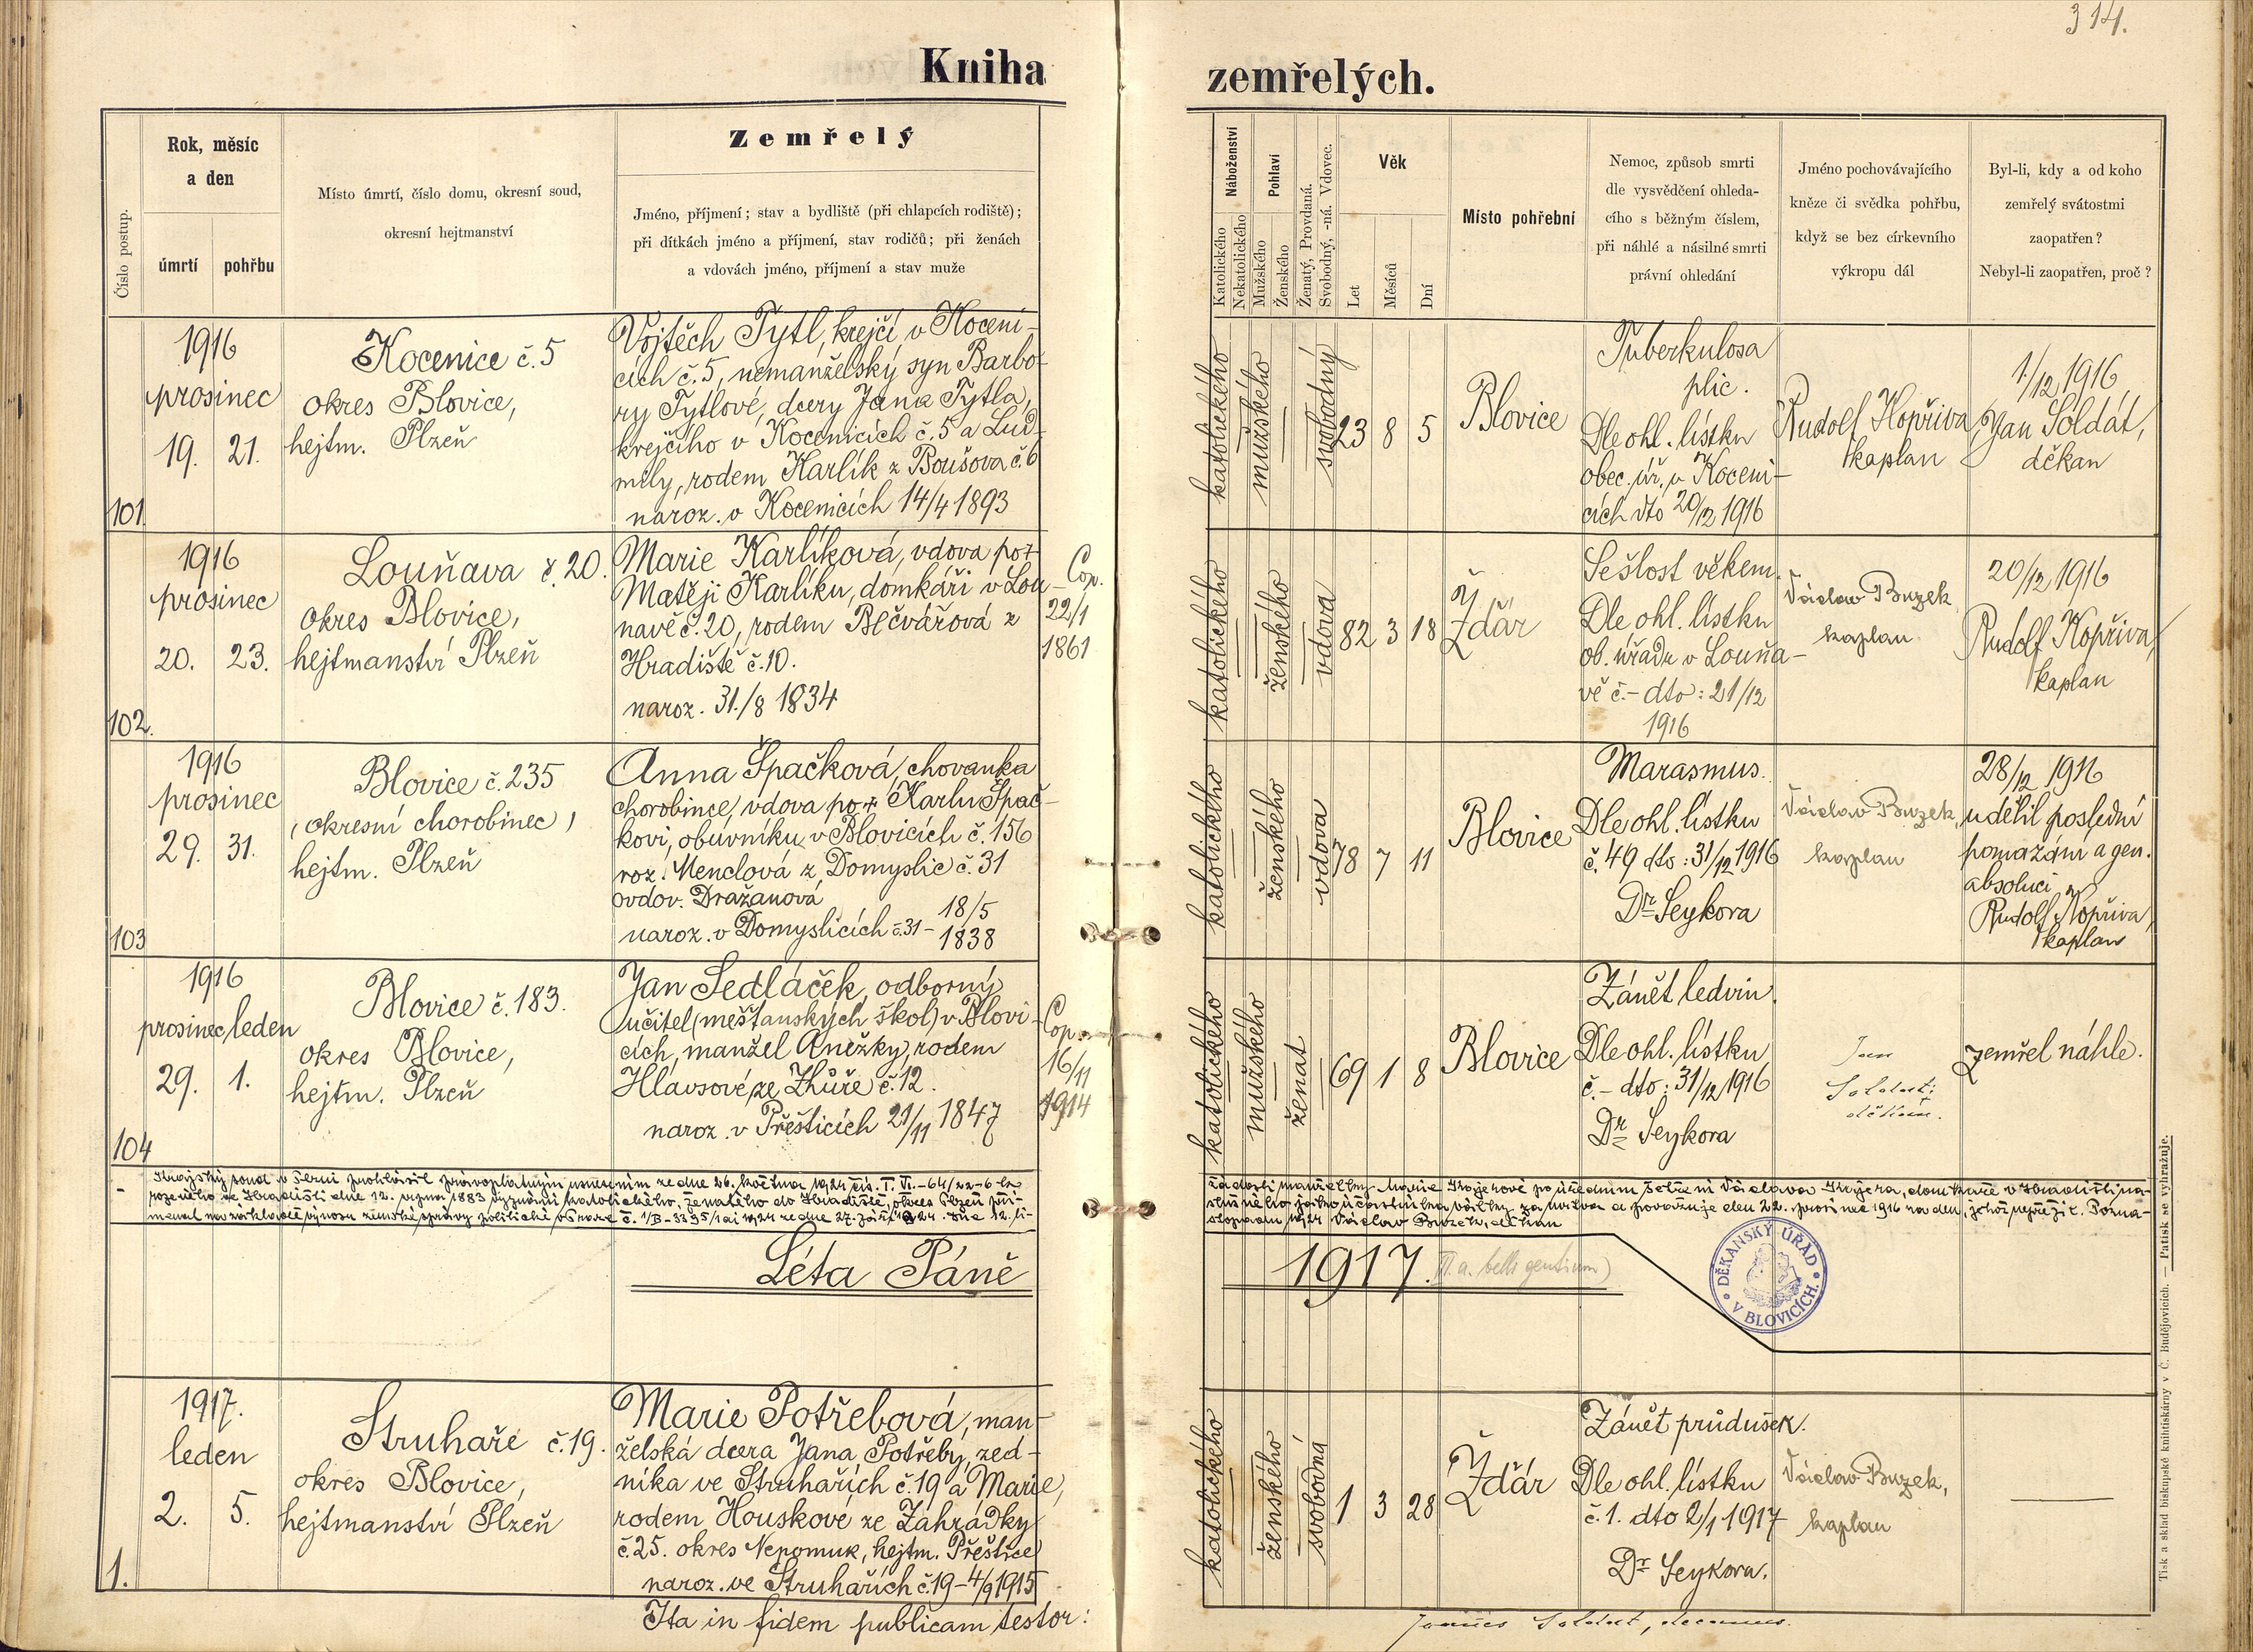 314.
Kniha zemřelých.
Číslo postup.
Rok, měsíc
a den
úmrtí
pohřbu
Místo úmrtí, číslo domu, okresní soud,
okresní hejtmanství
Zemřelý
Jméno, příjmení; stav a bydliště (při chlapcích rodiště);
při dítkách jméno a příjmení, stav rodičů; při ženách
a vdovách jméno, příjmení a stav muže
Náboženství
Katolického
Nekatolického
Pohlaví
Mužského
Ženského
Ženatý, Provdaná.
Svobodný, -ná. Vdovec.
Věk
Let
Měsíců
Dní
Místo pohřební
Nemoc, způsob smrti
dle vysvědčení ohleda-
cího s běžným číslem,
při náhlé a násilné smrti
právní ohledání
Jméno pochovávajícího
kněze či svědka pohřbu,
když se bez církevního
výkropu dál
Byl-li, kdy a od koho
zemřelý svátostmi
zaopatřen?
Nebyl-li zaopatřen, proč?
101
1916
prosinec
19. 21.
Kocenice č. 5
okres Blovice,
hejtm. Plzeň
Vojtěch Tytl, krejčí v Koceni-
cích č. 5, nemanželský syn Barbo-
ry Tytlové, dcery Jana Tytla,
krejčího v Kocenicích č. 5 a Lud-
mily, rodem Karlík z Boušova č. 6
naroz. v Kocenicích 14/4 1893
katolického
mužského
svobodný
23 8 5
Blovice
Tuberkulosa
plic.
Dle ohl. lístku
obec. úř. v Koceni-
cích dto 20/12 1916
Rudolf Kopřiva
kaplan
1./12 1916
Jan Soldát,
děkan
102.
1916
prosinec
20. 23.
Louňava č. 20.
okres Blovice,
hejtmanství Plzeň
Marie Karlíková, vdova po †
Matěji Karlíku, domkáři v Lou-
navě č. 20, rodem Bečvářová z
Hradiště č. 10.
naroz. 31./8 1834
Cop.
22/1
1861
katolického
ženského
vdova
82 3 18
Ždár
Sešlost věkem.
Dle ohl. lístku
ob. úřadu v Louňa-
vě č. - dto: 21/12
1916
Václav Buzek
kaplan
20/12 1916
Rudolf Kopřiva,
kaplan
103
1916
prosinec
29. 31.
Blovice č. 235
(okresní chorobinec)
hejtm. Plzeň
Anna Špačková, chovanka
chorobince, vdova po † Karlu Špač-
kovi, obuvníku v Blovicích č. 156
roz. Menclová z Domyslic č. 31
ovdov. Dražanová
naroz. v Domyslicích č. 31 - 18/5
1838
katolického
ženského
vdova
78 7 11
Blovice
Marasmus.
Dle ohl. lístku
č. 49 dto: 31/12 1916
Dr Seykora
Václav Buzek,
kaplan
28/12 1916
udělil poslední
pomazání a gen.
absoluci
Rudolf Kopřiva,
kaplan
104
1916
prosinec/leden
29. 1.
Blovice č. 183.
okres Blovice,
hejtm. Plzeň
Jan Sedláček, odborný
učitel (měšťanských škol) v Blovi-
cích, manžel Anežky, rodem
Hlávsové, ze Zhůře č. 12.
naroz. v Přešticích 21/11 1847
Cop.
16/11
1914
katolického
mužského
ženat
69 1 8
Blovice
Zánět ledvin.
Dle ohl. lístku
č. - dto: 31/12 1916
Dr Seykora
Jan
Soldát;
děkan.
zemřel náhle.
Krajský soud v Plzni prohlásil právoplatným usnesením ze dne 26. května 1924 čís. T. VI. - 64/22-6 ku žádosti manželky Marie Krojerové po úředním šetření Václava Krojera, domkáře v Hradišti na-
rozeného ve Hradišti dne 12. srpna 1883 vyznání katolického, ženatého do Hradiště, okres Plzeň pří-
slušného jako účastníka války za mrtva a považuje den 22. prosince 1916 za den, jehož nepřežil. Pozna-
menal na základě výnosu zemské správy politické v Praze č. 1/B-3395/1 ai 1924 ze dne 27. září 1924. dne 12. li-
stopadu 1924 Václav Buzek, děkan
Léta Páně 1917.
(III. a. belli gentium)
DĚKANSKÝ ÚŘAD
V BLOVICÍCH.
1.
1917.
leden
2. 5.
Struhaře č. 19.
okres Blovice,
hejtmanství Plzeň
Marie Potřebová, man-
želská dcera Jana Potřeby, zed-
níka ve Struhařích č. 19 a Marie,
rodem Houskové ze Zahrádky
č. 25. okres Nepomuk, hejtm. Přeštice
naroz. ve Struhařích č. 19 - 4/9 1915
katolického
ženského
svobodná
1 3 28
Ždár
Zánět průdušek.
Dle ohl. lístku
č. 1. dto 2/1 1917
Dr Seykora.
Václav Buzek,
kaplan
Ita in fidem publicam testor:
Joannes Soldát, decanus.
Tisk a sklad biskupské knihtiskárny v Č. Budějovicích. — Patisk se vyhražuje.